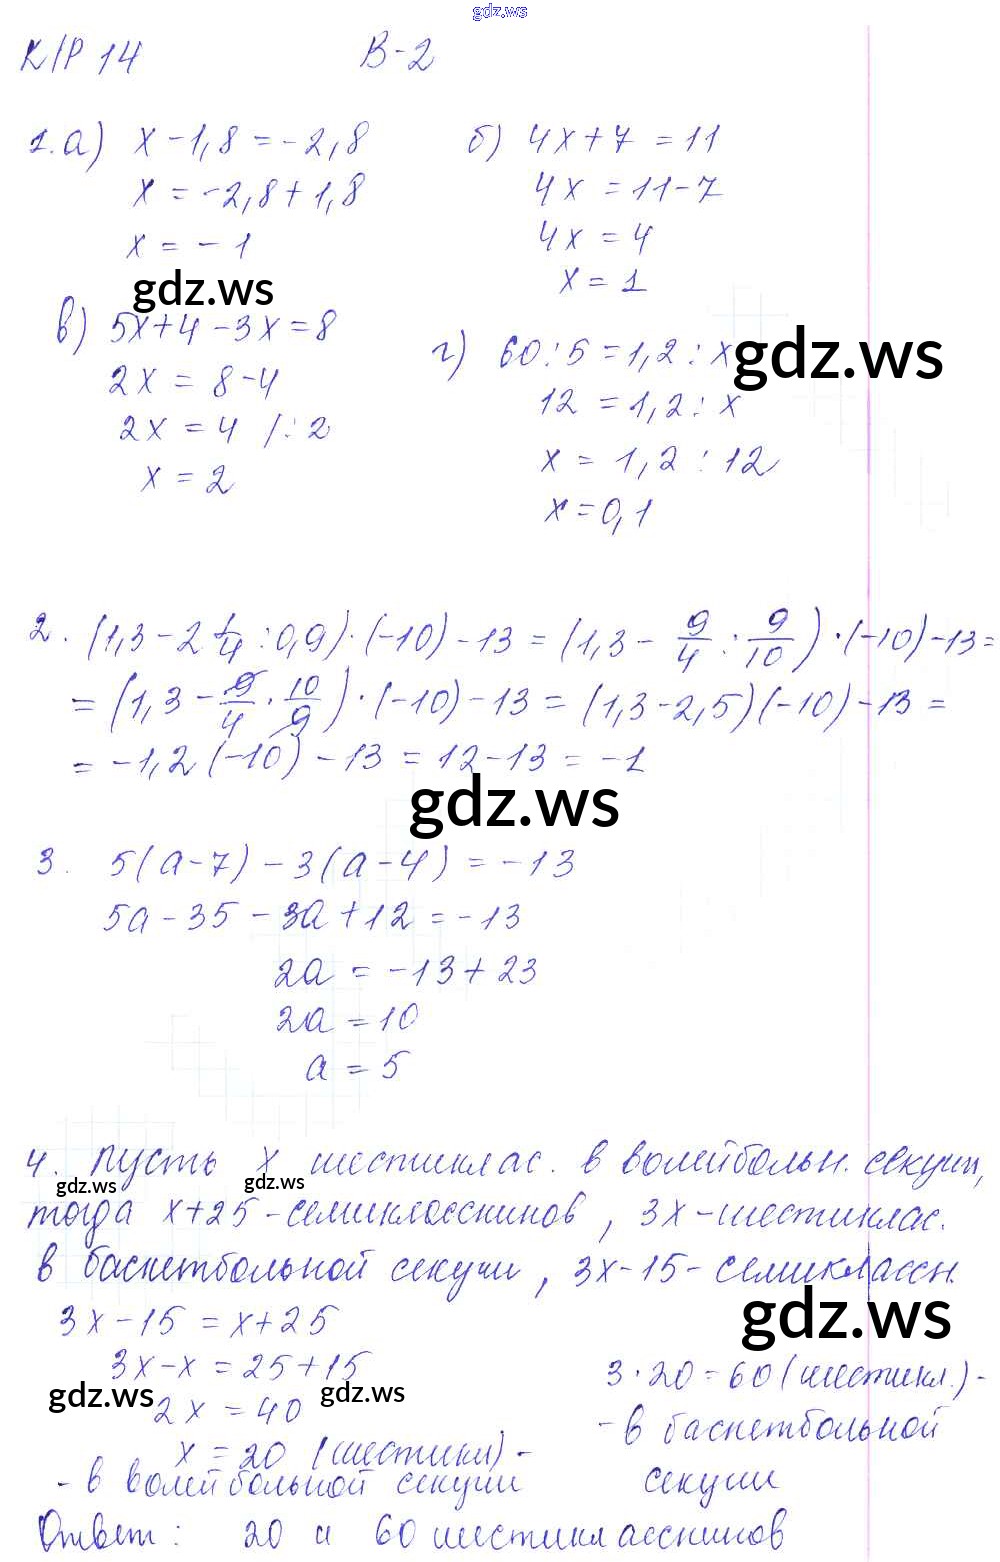 gdz.ws
К/Р 14 В-2
1. а) x - 1,8 = -2,8
x = -2,8 + 1,8
x = -1
б) 4x + 7 = 11
4x = 11 - 7
4x = 4
x = 1
gdz.ws
в) 5x + 4 - 3x = 8
2x = 8 - 4
2x = 4 /:2
x = 2
г) 60 : 5 = 1,2 : x
gdz.ws
12 = 1,2 : x
x = 1,2 : 12
x = 0,1
2. (1,3 - 2 1/4 : 0,9) · (-10) - 13 = (1,3 - 9/4 : 9/10) · (-10) - 13 =
= (1,3 - 9/4 · 10/9) · (-10) - 13 = (1,3 - 2,5)(-10) - 13 =
= -1,2 (-10) - 13 = 12 - 13 = -1
gdz.ws
3. 5(a - 7) - 3(a - 4) = -13
5a - 35 - 3a + 12 = -13
2a = -13 + 23
2a = 10
a = 5
4. Пусть x шестиклас. в волейбольн. секции,
gdz.ws gdz.ws
тогда x + 25 - семиклассников, 3x - шестиклас.
в баскетбольной секции, 3x - 15 - семиклассн.
gdz.ws
3x - 15 = x + 25
3x - x = 25 + 15
gdz.ws gdz.ws
2x = 40
x = 20 (шестикл) -
- в волейбольной секции
3 · 20 = 60 (шестикл.) -
- в баскетбольной
секции
Ответ: 20 и 60 шестиклассников